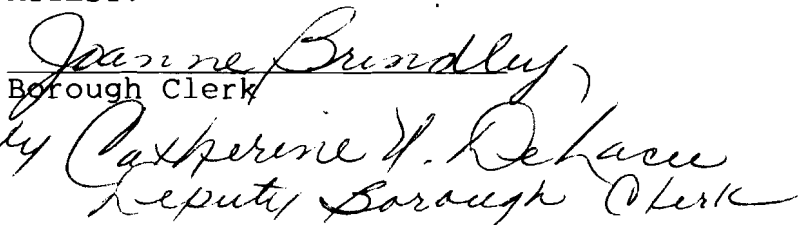 Joanne Brindley
Borough Clerk
by Catherine
Deputy Borough Clerk